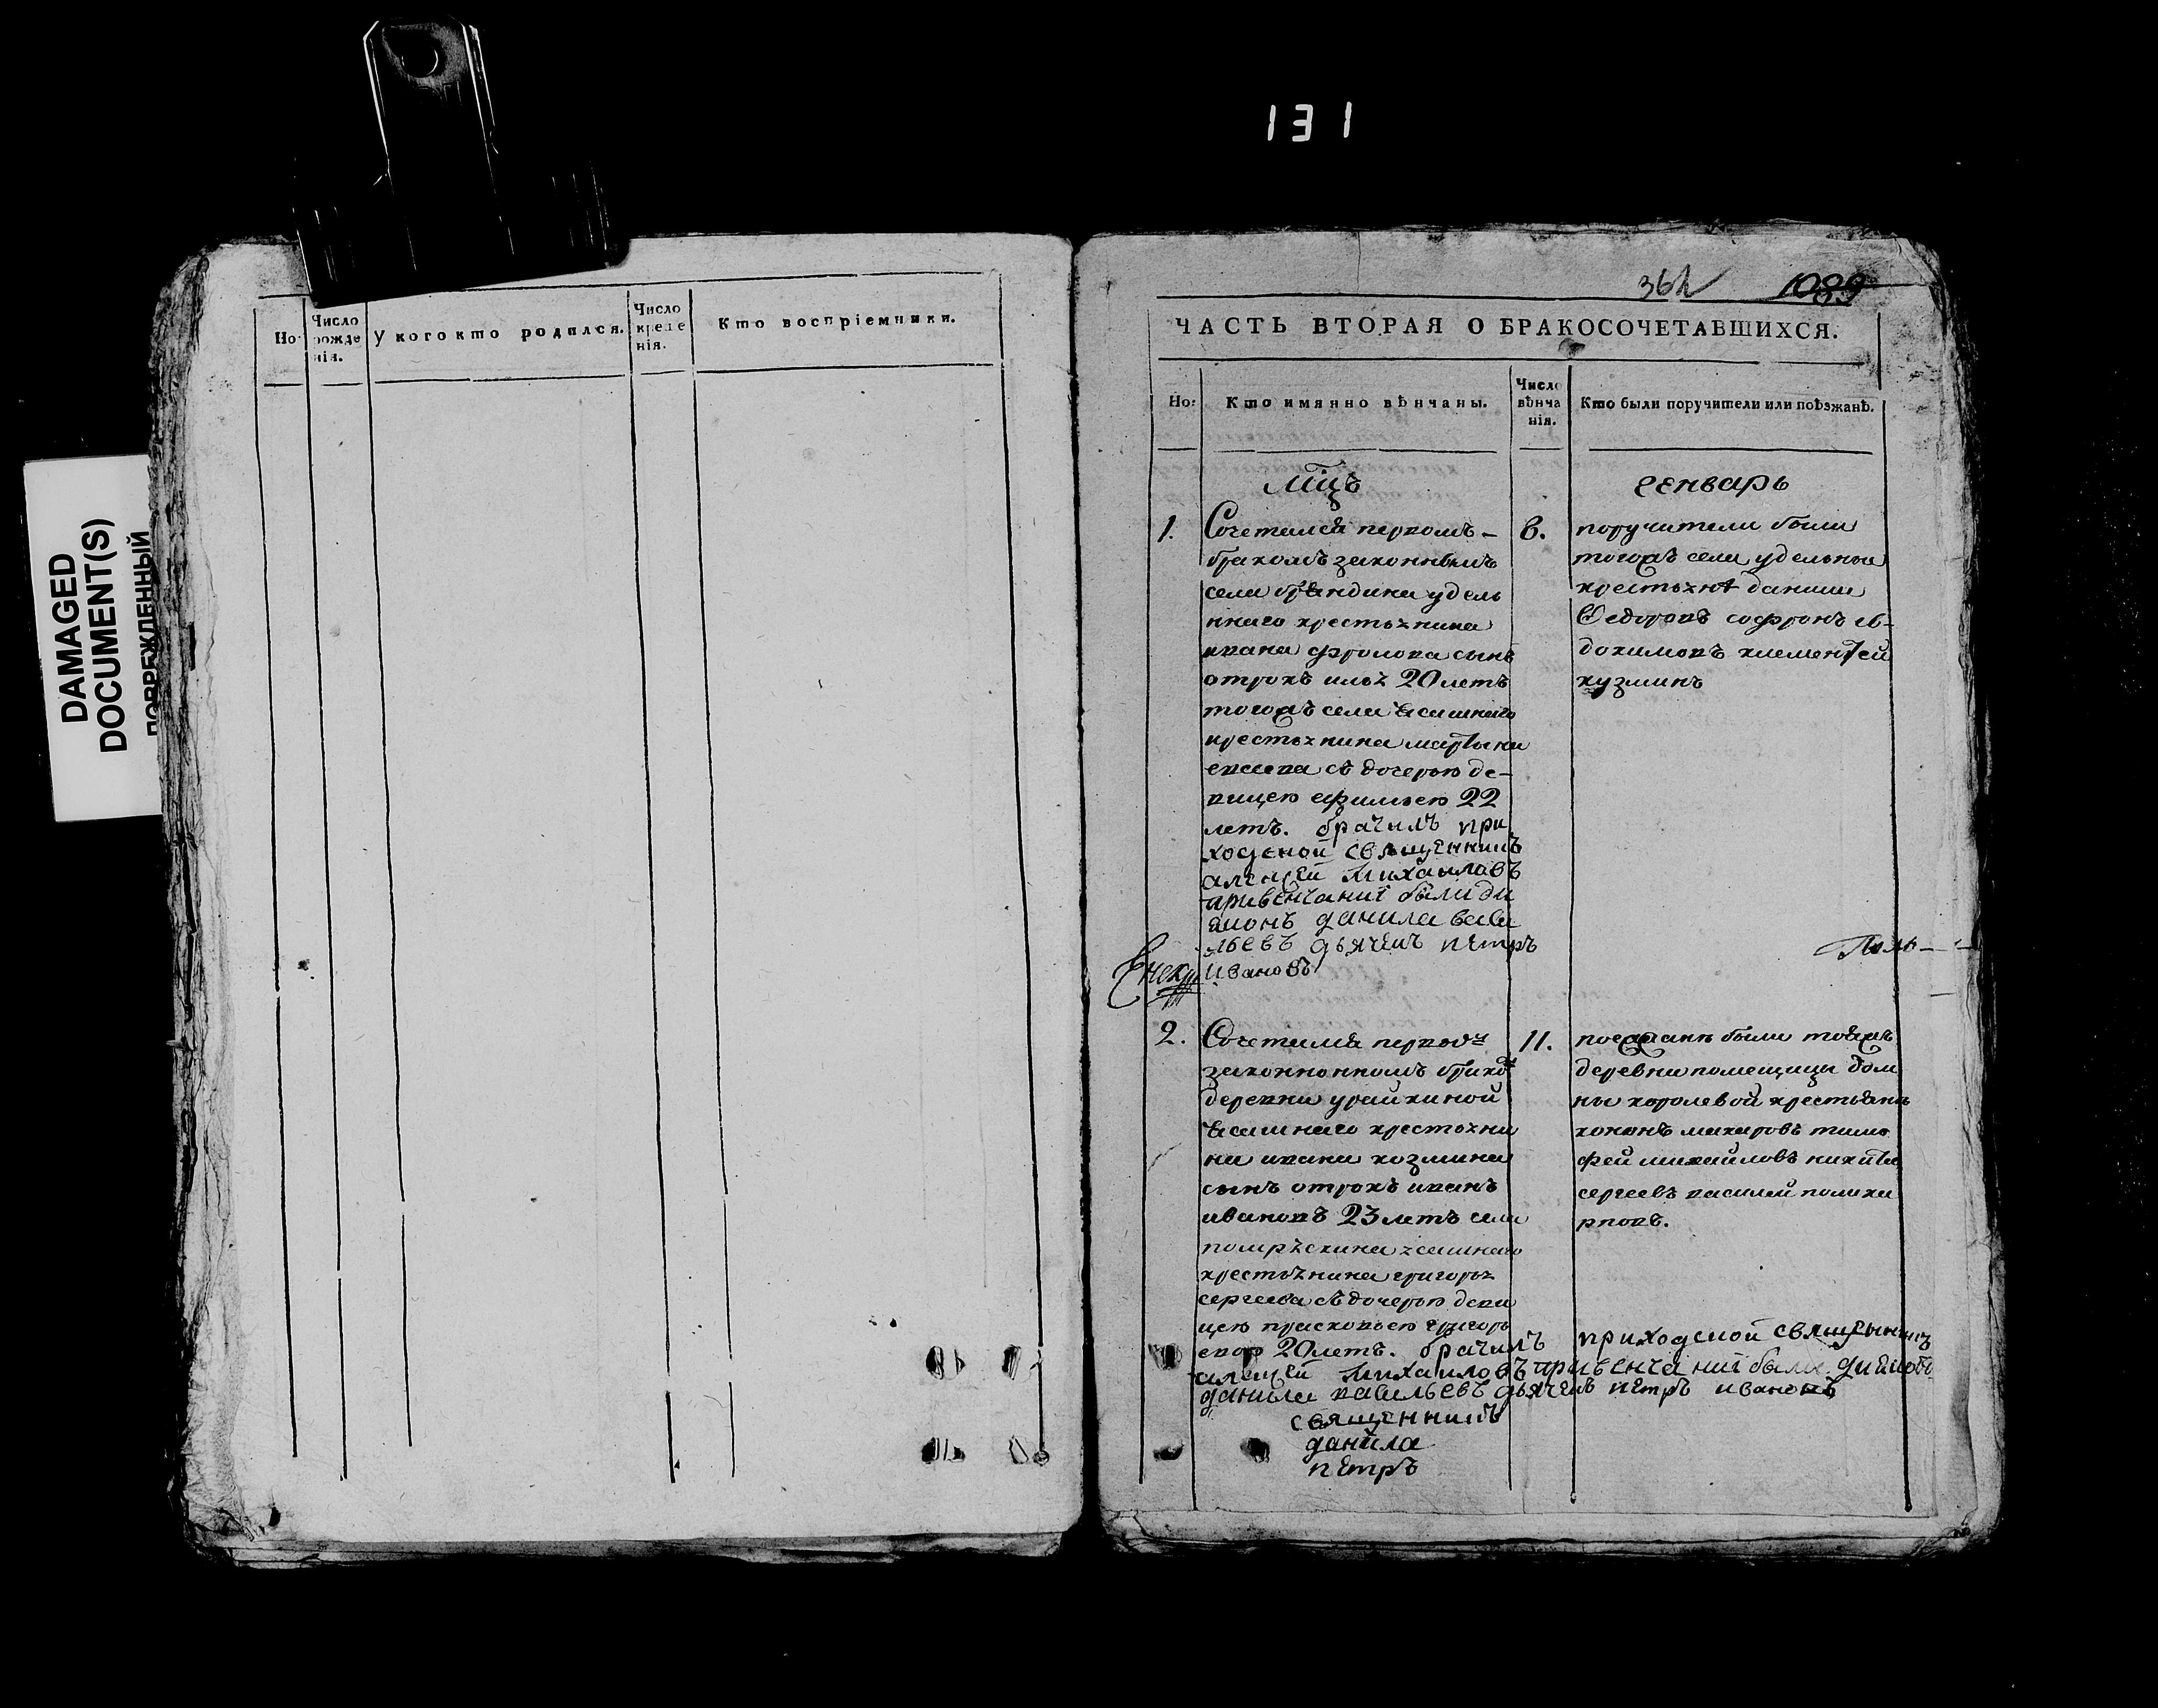 131
DAMAGED
DOCUMENT(S)
ПОВРЕЖДЕННЫЙ
Но:
Число
рожде
нія.
У кого кто родился.
Число
креще
нія.
Кто воспріемники.
1089
ЧАСТЬ ВТОРАЯ О БРАКОСОЧЕТАВШИХСЯ.
Но:
Кто имянно вѣнчаны.
Число
вѣнча
нія.
Кто были поручители или поѣзжанѣ.
мцъ
генварь
1.
Сочетался первомъ
бракомъ законнымъ
села брандина удель
ннаго крестьянина
ивана фролова сынъ
отрокъ илья 20 летъ
тогожъ села ясашнаго
крестьянина мартына
евсеева съ дочерью де-
вицею ефимьею 22
летъ. брачилъ при
ходской священникъ
алеѯей михаиловъ
привенчаниї были ди
яконъ данила васи
льевъ дьячекъ петръ
ивановъ
8.
поручители были
тогожъ села удельныя
крестьянѣ данила
Ѳедоровъ софронъ ев-
докимовъ клементей
кузминъ
2.
Сочетался первым
законнонномъ браком
деревни урайкиной
ясашнаго крестьяни
на ивана козмина
сынъ отрокъ иванъ
ивановъ 23 летъ села
помряскина ясашнаго
крестьянина григорья
сергеева съ дочерью деви
цею прасковьею григорь
евой 20 летъ. брачилъ приходской священникъ
алеѯей михаиловъ привенчаниї были дияконъ
данила васильевъ дьячекъ петръ ивановъ
11.
поезжанѣ были тояжъ
деревни помещицы дом
ны королевой крестьянѣ
кононъ макаровъ тимо
фей михайловъ никита
сергеевъ василей полика
рповъ.
священникъ
данила
петръ